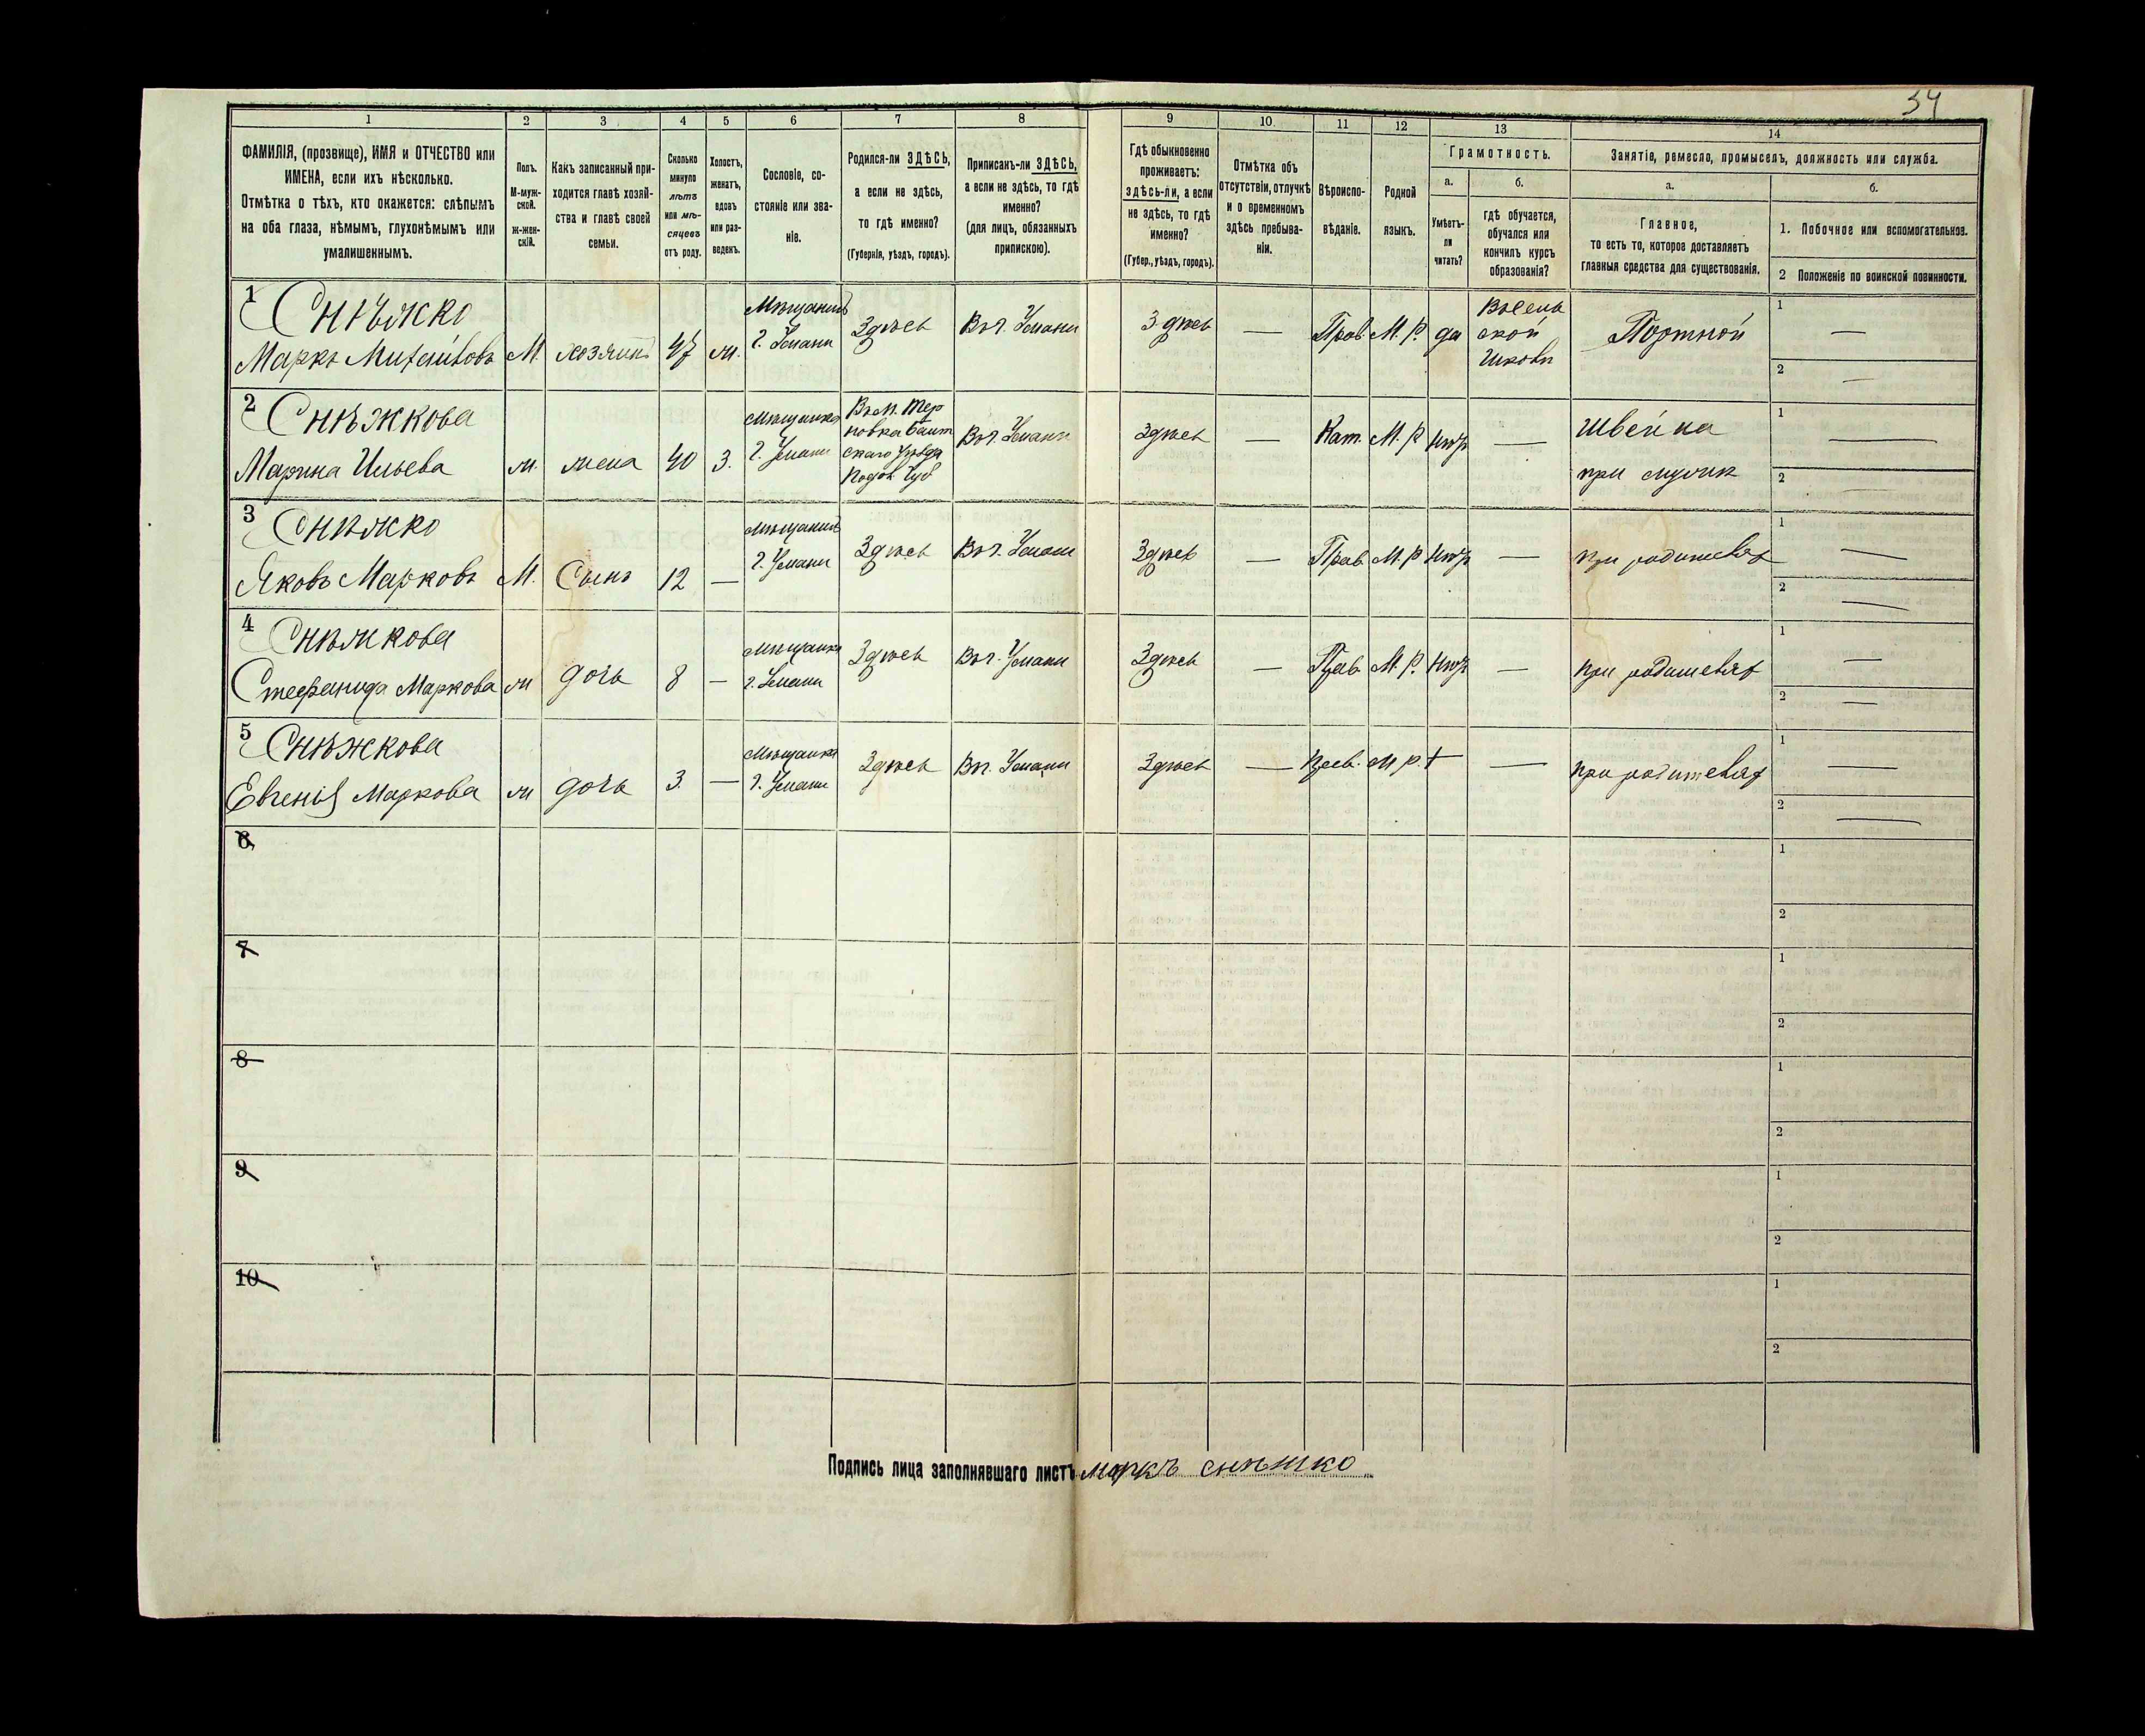 34
1
2
3
4
5
6
7
8
9
10
11
12
13
14
ФАМИЛІЯ, (прозвище), ИМЯ и ОТЧЕСТВО или
ИМЕНА, если ихъ нѣсколько.
Отмѣтка о тѣхъ, кто окажется: слѣпымъ
на оба глаза, нѣмымъ, глухонѣмымъ или
умалишеннымъ.
Полъ.
М-муж-
ской.
ж-жен-
скій.
Какъ записанный при-
ходится главѣ хозяй-
ства и главѣ своей
семьи.
Сколько
минуло
лѣтъ
или мѣ-
сяцевъ
отъ роду.
Холостъ,
женатъ,
вдовъ
или раз-
веденъ.
Сословіе, со-
стояніе или зва-
ніе.
Родился-ли ЗДѢСЬ,
а если не здѣсь,
то гдѣ именно?
(Губернія, уѣздъ, городъ).
Приписанъ-ли ЗДѢСЬ,
а если не здѣсь, то гдѣ
именно?
(для лицъ, обязанныхъ
припискою).
Гдѣ обыкновенно
проживаетъ:
здѣсь-ли, а если
не здѣсь, то гдѣ
именно?
(Губер., уѣздъ, городъ).
Отмѣтка объ
отсутствіи, отлучкѣ
и о временномъ
здѣсь пребыва-
ніи.
Вѣроиспо-
вѣданіе.
Родной
языкъ.
Грамотность.
а.
Умѣетъ-
ли
читать?
б.
гдѣ обучается,
обучался или
кончилъ курсъ
образованія?
Занятіе, ремесло, промыселъ, должность или служба.
а.
Главное,
то есть то, которое доставляетъ
главныя средства для существованія.
б.
1. Побочное или вспомогательное.
2 Положеніе по воинской повинности.
1
Снѣжко
Маркъ Михайловъ
М.
хозяинъ
47
ж.
Мѣщанинъ
г. Умани
Здѣсь
Въ г. Умани
Здѣсь
—
Прав
М. Р.
да
ской
Портной
1 —
2 —
2
Снѣжкова
Марина Ильева
ж.
жена
40
З.
Мѣщанка
г. Умани
Въ м. Тер
новка Балт
скаго Уѣзда
Подол Губ
Въ г. Умани
Здѣсь
—
Кат.
М. Р
нѣтъ
—
Швейка
при мужѣ
1 —
2 —
3
Снѣжко
Яковъ Марковъ
М.
Сынъ
12
—
Мѣщанинъ
г. Умани
Здѣсь
Въ г. Умани
Здѣсь
—
Прав
М. Р
нѣтъ
—
при родителяхъ
1 —
2 —
4
Снѣжкова
Стефанида Маркова
ж
дочь
8
—
Мѣщанка
г. Умани
Здѣсь
Въ г. Умани
Здѣсь
—
Прав
М. Р.
нѣтъ
—
при родителяхъ
1 —
2 —
5
Снѣжкова
Евгенія Маркова
ж
дочь
3
—
Мѣщанка
г. Умани
Здѣсь
Въ г. Умани
Здѣсь
—
Прав.
М. Р.
—
при родителяхъ
1 —
2 —
6
1
2
7
1
2
8
1
2
9
1
2
10
1
2
Подпись лица заполнявшаго листъ маркъ снѣжко